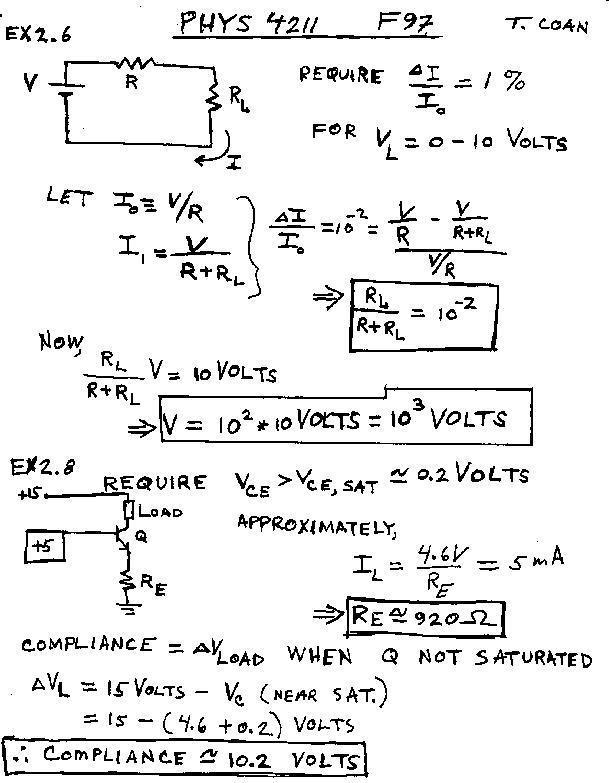 PHYS 4211 F97 T. COAN
EX2.6
V R R_L I
REQUIRE ΔI/I₀ = 1 %
FOR V_L = 0 - 10 VOLTS
LET I₀ ≡ V/R
I₁ = V/(R+R_L)
} ΔI/I₀ = 10⁻² = (V/R - V/(R+R_L))/(V/R)
⇒ R_L/(R+R_L) = 10⁻²
NOW,
R_L/(R+R_L) V = 10 VOLTS
⇒ V = 10² * 10 VOLTS = 10³ VOLTS
EX2.8
REQUIRE V_CE > V_CE, SAT ≃ 0.2 VOLTS
+15
LOAD
+5
Q
R_E
APPROXIMATELY,
I_L = 4.6V/R_E = 5 mA
⇒ R_E ≃ 920 Ω
COMPLIANCE = ΔV_LOAD WHEN Q NOT SATURATED
ΔV_L = 15 VOLTS - V_C (NEAR SAT.)
= 15 - (4.6 + 0.2) VOLTS
∴ COMPLIANCE ≃ 10.2 VOLTS